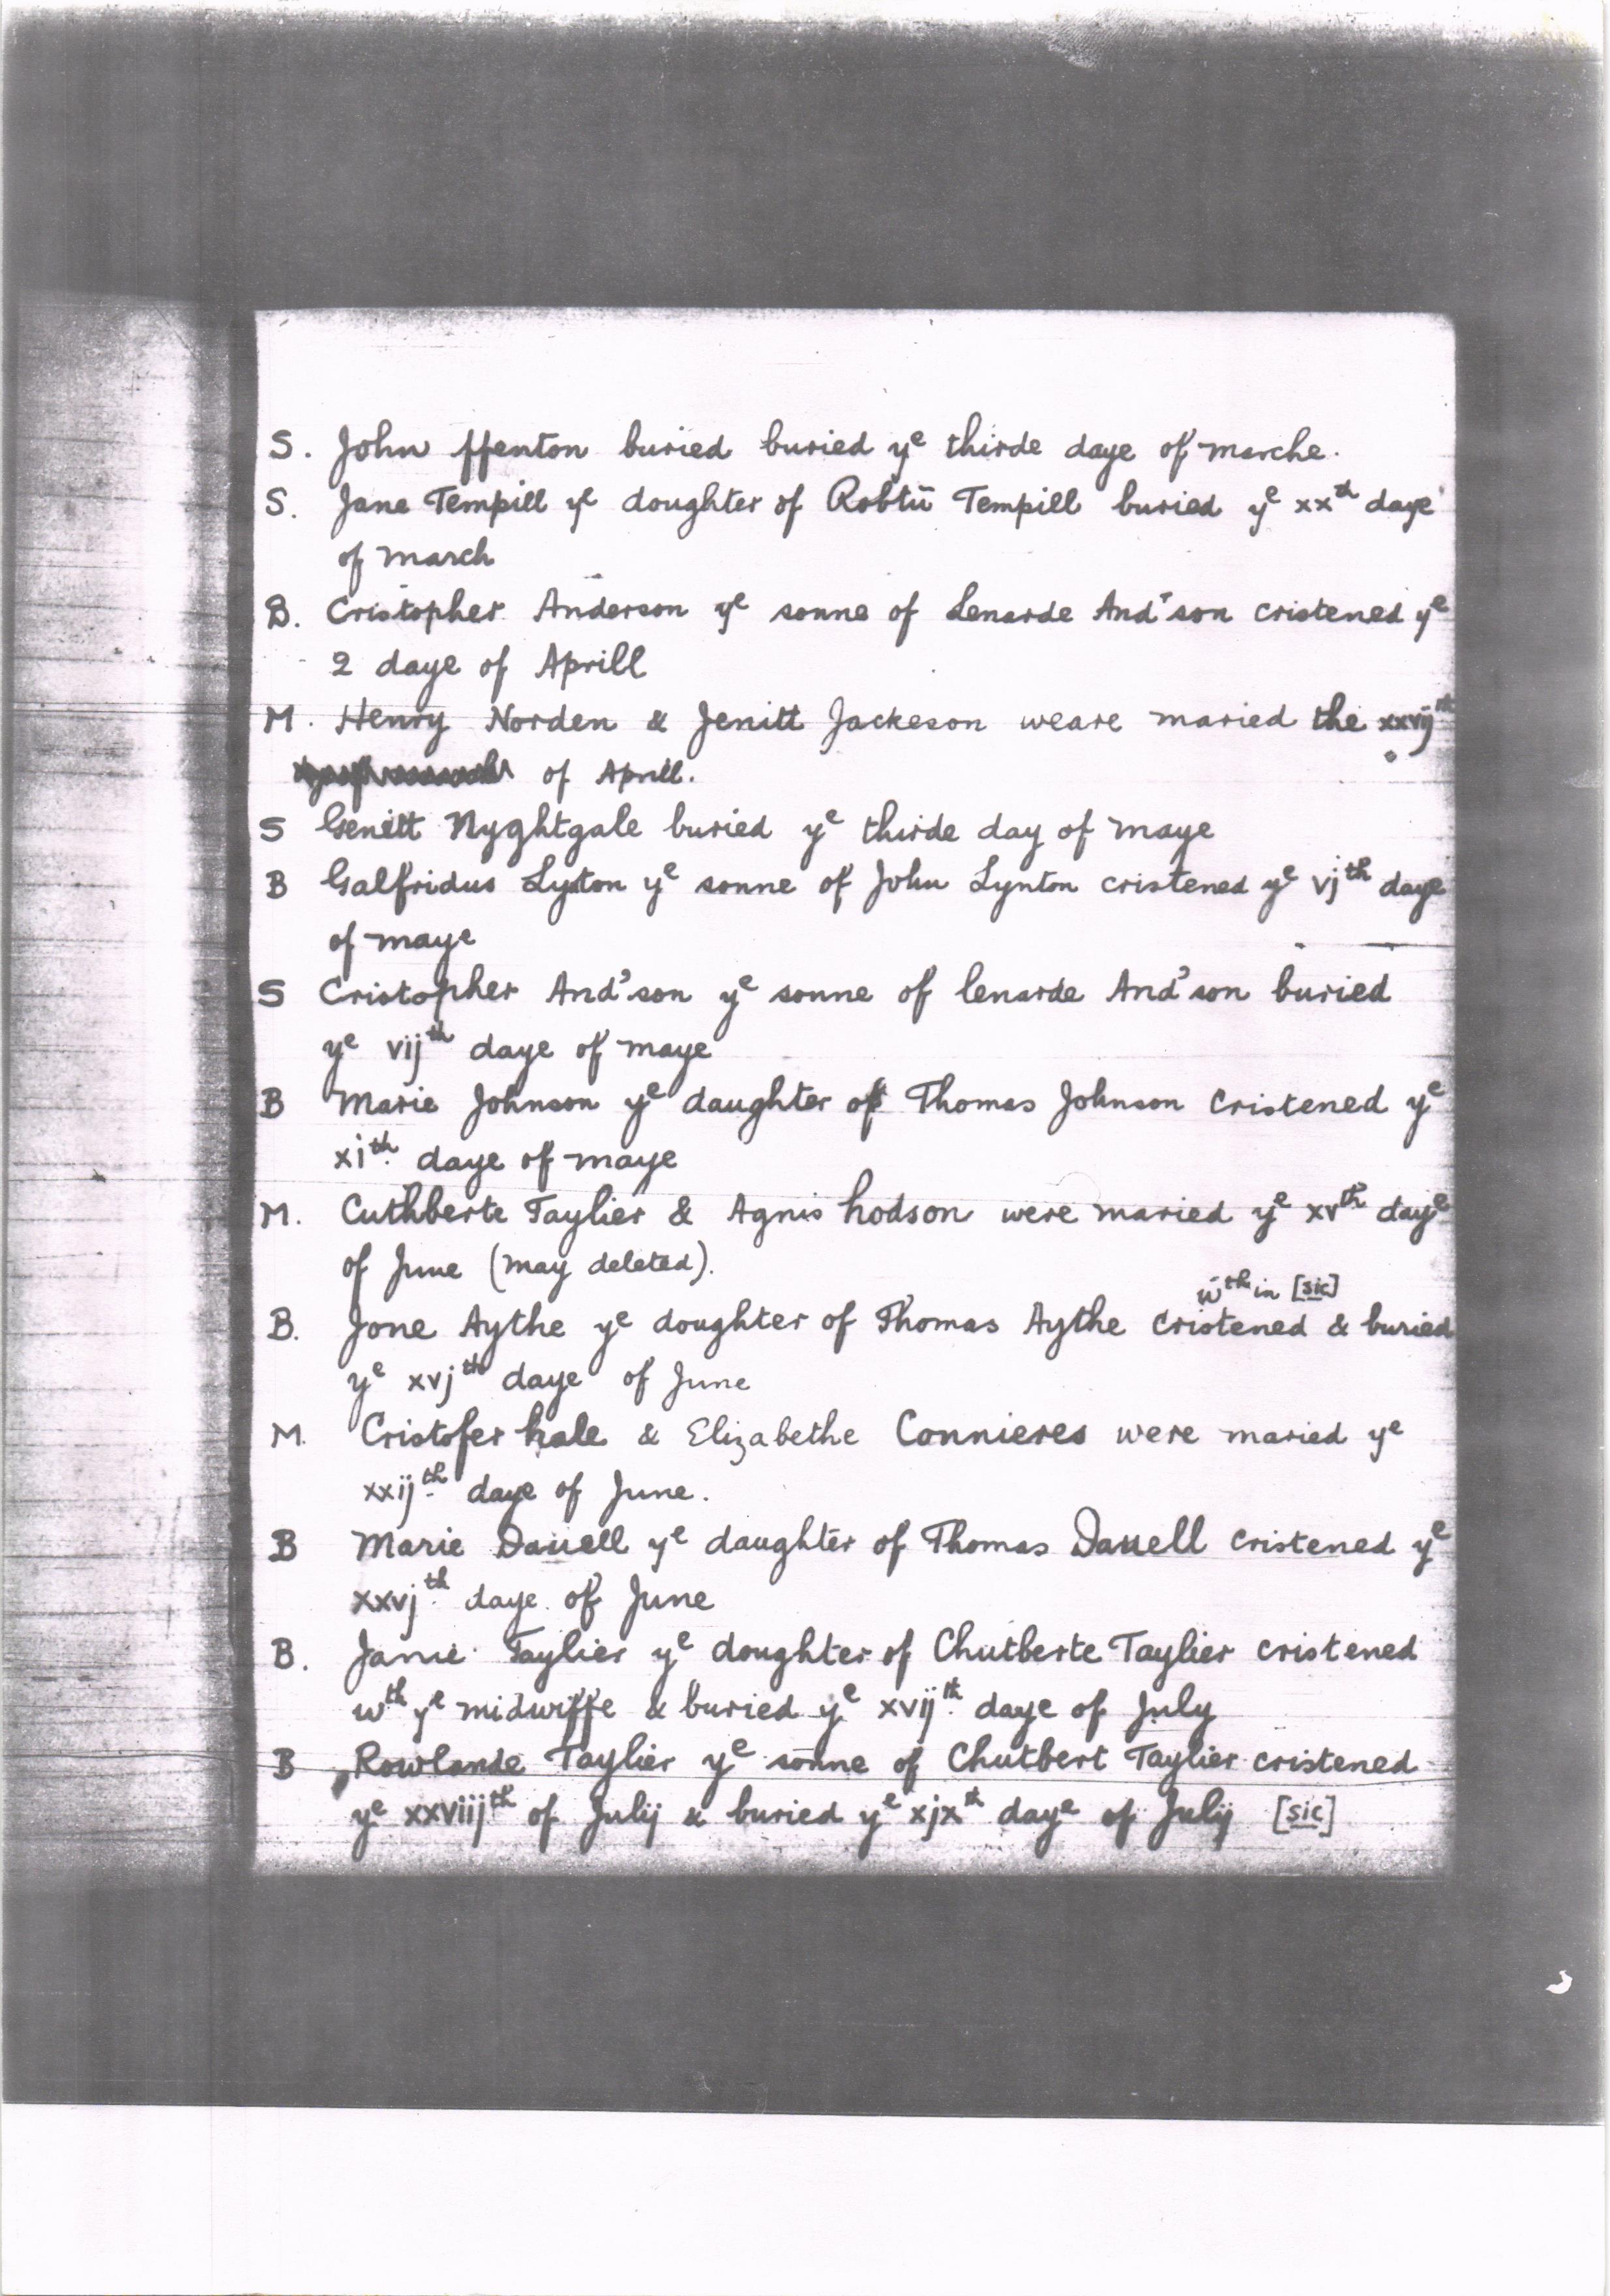 S. John ffenton buried buried yᵉ thirde daye of marche.
S. Jane Tempill yᵉ doughter of Robtū Tempill buried yᵉ xxᵗʰ daye
of march
B. Cristopher Anderson yᵉ sonne of Lenarde And'son cristened yᵉ
2 daye of Aprill
M. Henry Norden & Jenitt Jackeson weare maried the xxvijᵗʰ
of Aprill.
S Genett Nyghtgale buried yᵉ thirde day of maye
B Galfridus Lyston yᵉ sonne of John Lynton cristened yᵉ vjᵗʰ daye
of maye
S Cristopher And'son yᵉ sonne of lenarde And'son buried
yᵉ vijᵗʰ daye of maye
B Marie Johnson yᵉ daughter of Thomas Johnson Cristened yᵉ
xiᵗʰ daye of maye
M. Cuthberte Taylier & Agnis hodson were maried yᵉ xvᵗʰ dayᵉ
of June (may deleted).
wᵗʰin [sic]
B. Jone Aythe yᵉ doughter of Thomas Aythe Cristened & buried
yᵉ xvjᵗʰ daye of June
M. Cristofer hale & Elizabethe Connieres were maried yᵉ
xxijᵗʰ daye of June.
B Marie Dauell yᵉ daughter of Thomas Dauell cristened yᵉ
xxvjᵗʰ daye of June
B. Janie Taylier yᵉ doughter of Chutberte Taylier cristened
wᵗʰ yᵉ midwiffe & buried yᵉ xvijᵗʰ daye of July
B Rowlande Taylier yᵉ sonne of Chutbert Taylier cristened
yᵉ xxviijᵗʰ of Julij & buried yᵉ xjxᵗʰ dayᵉ of Julij [sic]